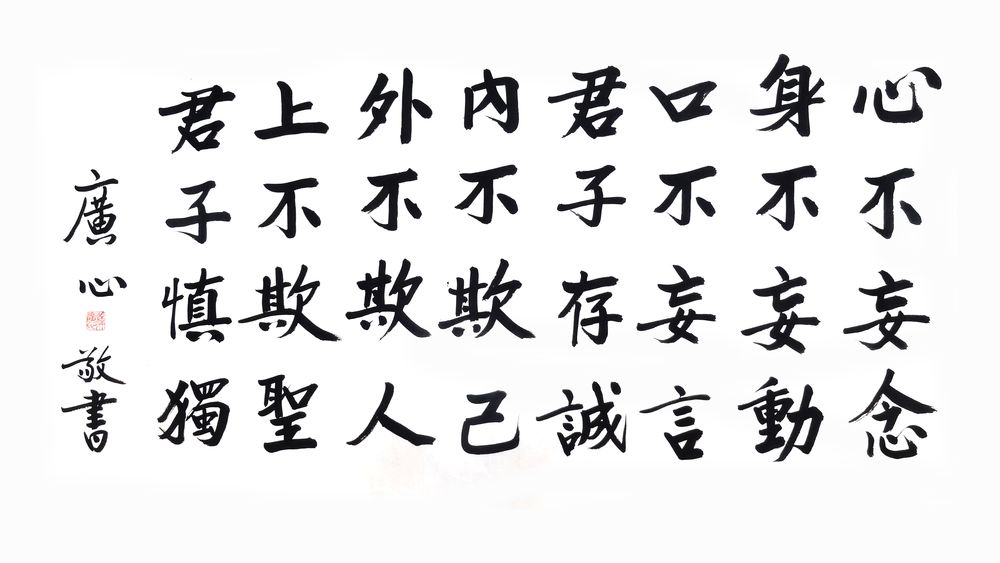 心不妄念
身不妄動
口不妄言
君子存誠
內不欺己
外不欺人
上不欺聖
君子慎獨
廣心
敬書